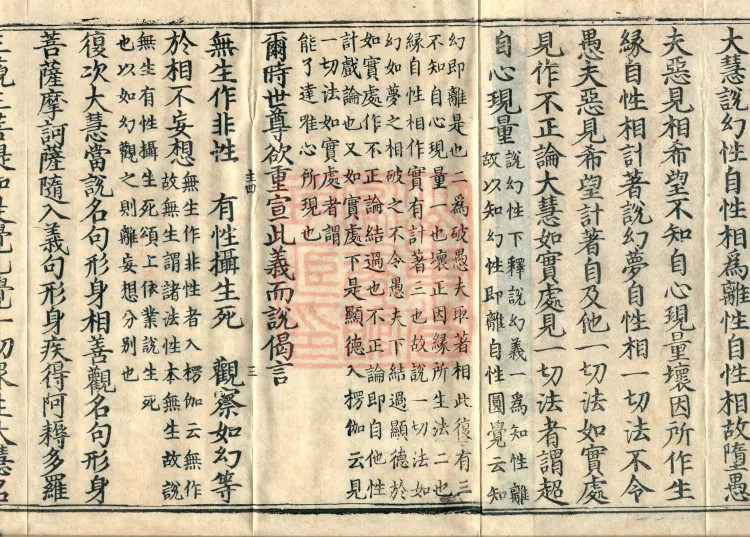 大慧說幻性自性相為離性自性相故墮愚
夫惡見相希望不知自心現量壞因所作生
緣自性相計著說幻夢自性相一切法不令
愚夫惡見希望計著自及他一切法如實處
見作不正論大慧如實處見一切法者謂超
自心現量
說幻性下釋說幻義一為知性離
故以知幻性即離自性圓覺云知
幻即離是也二為破愚夫取著相此復有三
不知自心現量一也壞正因緣所生法二也
緣自性相作實有計著三也故說一切法如
幻如夢之相破之不令愚夫下結過顯德於
如實處作不正論結過也不正論即自他性
計戲論也又如實處下是顯德入楞伽云見
一切法如實處者謂
能了達唯心所現也
爾時世尊欲重宣此義而說偈言
無生作非性 有性攝生死 觀察如幻等
於相不妄想
無生作非性者入楞伽云無作
故無生謂諸法性本無生故說
無生有性攝生死頌上依業說生死
也以如幻觀之則離妄想分別也
復次大慧當說名句形身相善觀名句形身
菩薩摩訶薩隨入義句形身疾得阿耨多羅
三藐三菩提如是覺已覺一切眾生大慧名